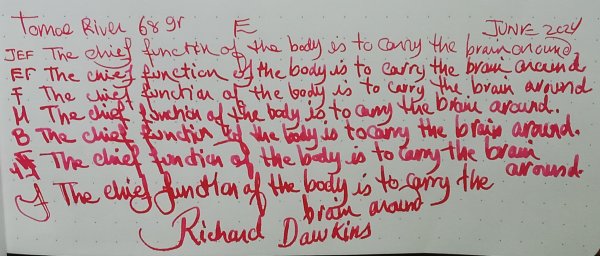 Tomoe River 68 gr E JUNE 2024
JEF The chief function of the body is to carry the brain around.
EF The chief function of the body is to carry the brain around.
F The chief function of the body is to carry the brain around
M The chief function of the body is to carry the brain around.
B The chief function of the body is to carry the brain around.
The chief function of the body is to carry the brain
around.
J The chief function of the body is to carry the
brain around
Richard Dawkins